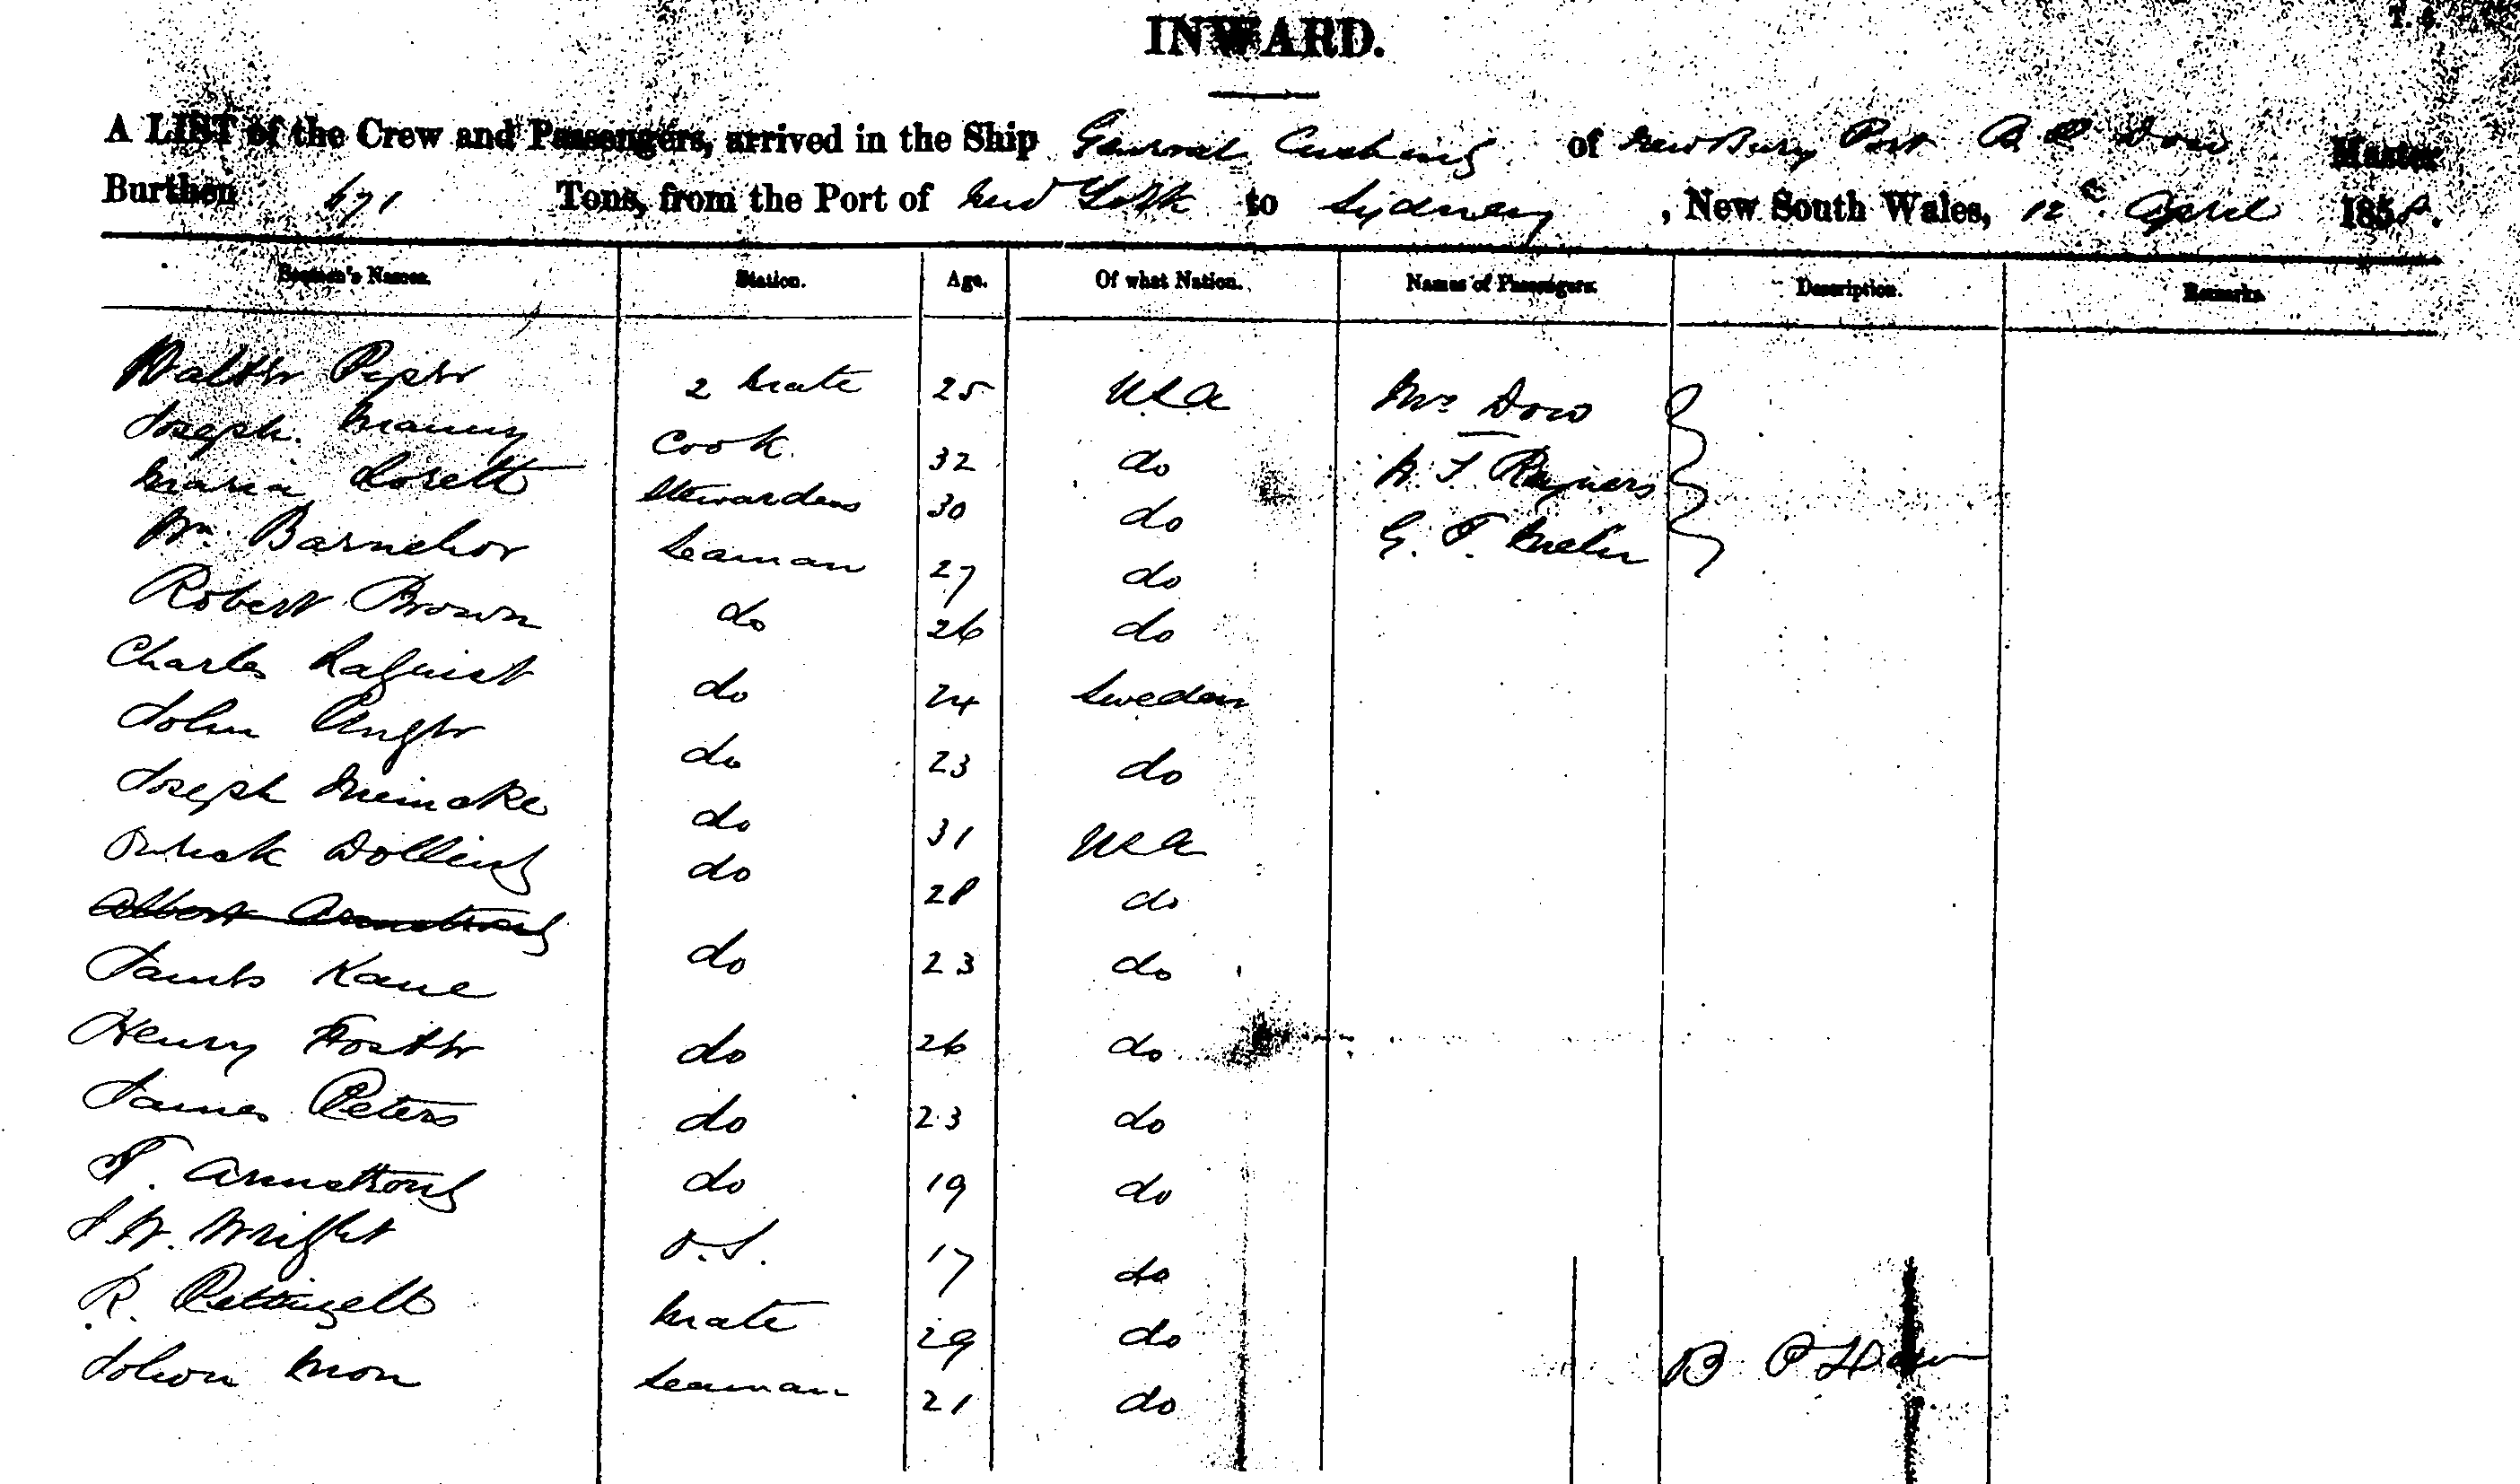 INWARD.
A LIST of the Crew and Passengers, arrived in the Ship General Cushing of NewBury Port B P Dow Master
Burthen 671 Tons, from the Port of New York to Sydney, New South Wales, 12 April 1858.
Seamen's Names. Station. Age. Of what Nation. Names of Passengers. Description. Remarks.
Walter 2 Mate 25 USA Mrs Dow
Joseph Cook 32 do
Maria Stewardess 30 do
Wm Seaman 27 do G. F.
Robert Brown do 26 do
Charles do 24 Sweden
John do 23 do
Joseph Meincke do 31 USA
do 28 do
Albert Armstrong
James Kane do 23 do
Henry Foster do 26 do
James Peters do 23 do
F. Armstrong do 19 do
J W. Wright O.S. 17 do
R. Pettingell Mate 29 do
Seaman 21 do
B P Dow